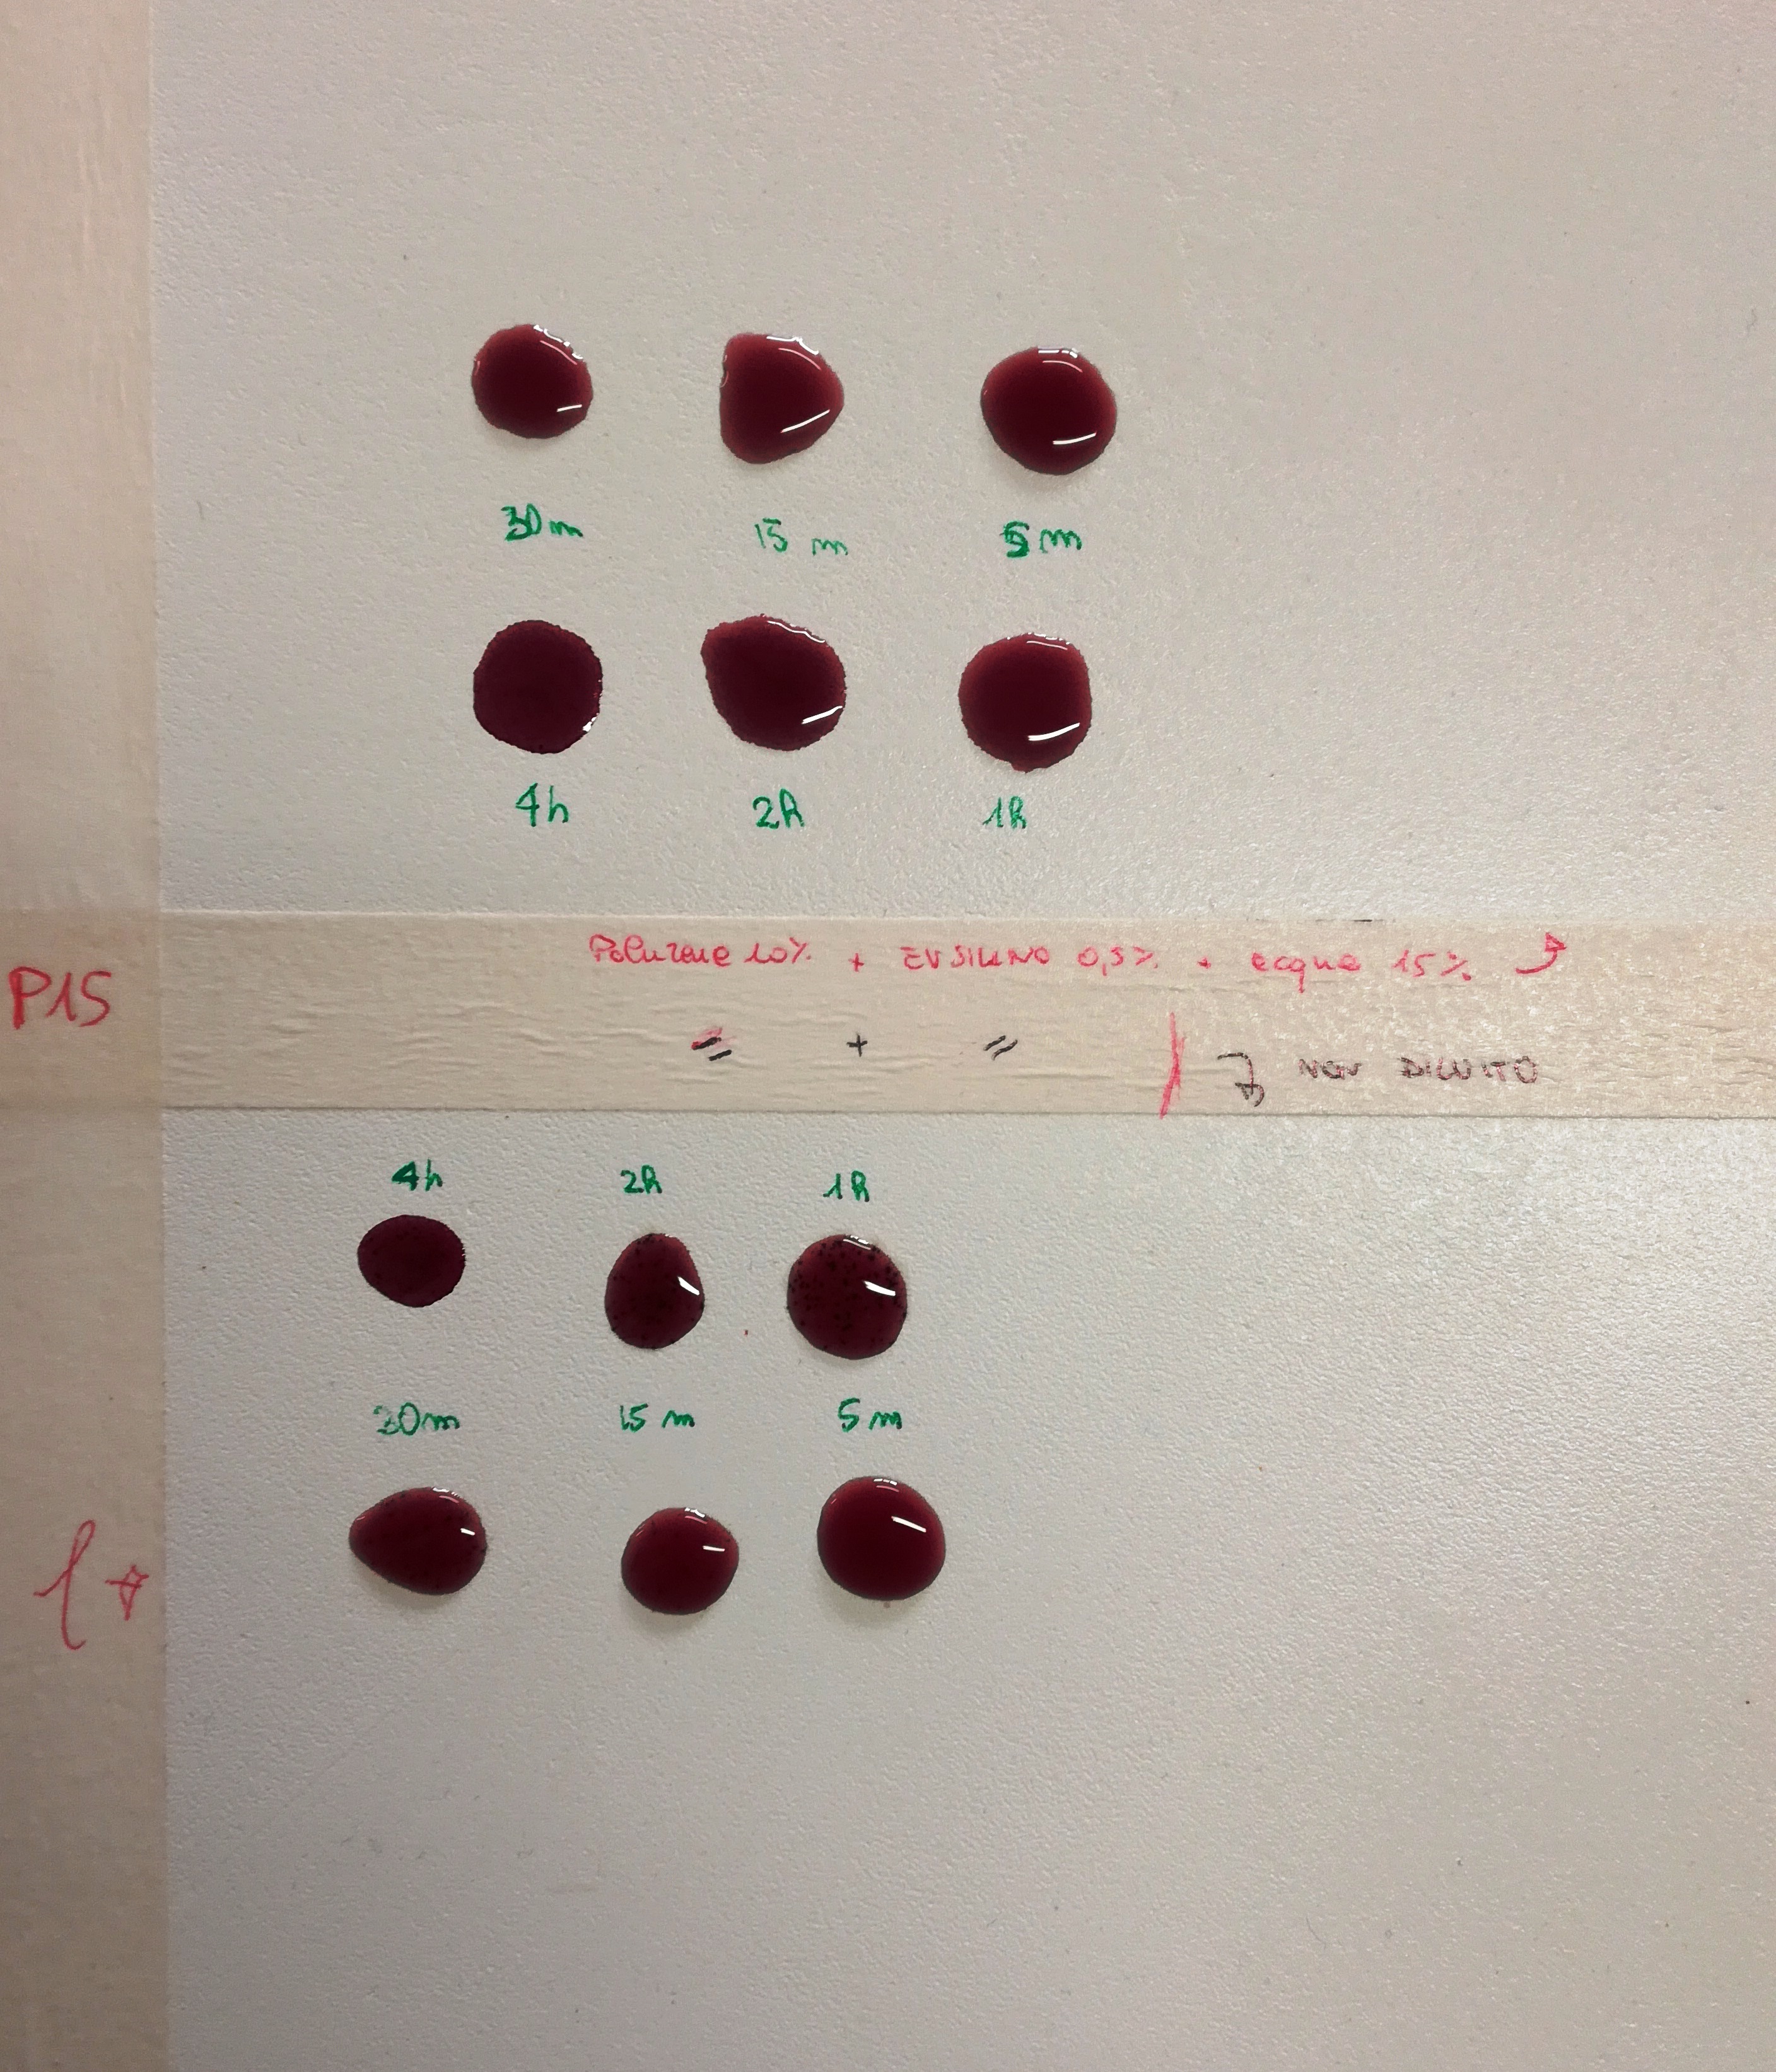 30m 15 m 5m
4h 2h 1h
P15
Poliurene 10% + EUSILINO 0,5% + acqua 15%
〃 + 〃 NON DILUITO
4h 2h 1h
30m 15 m 5 m